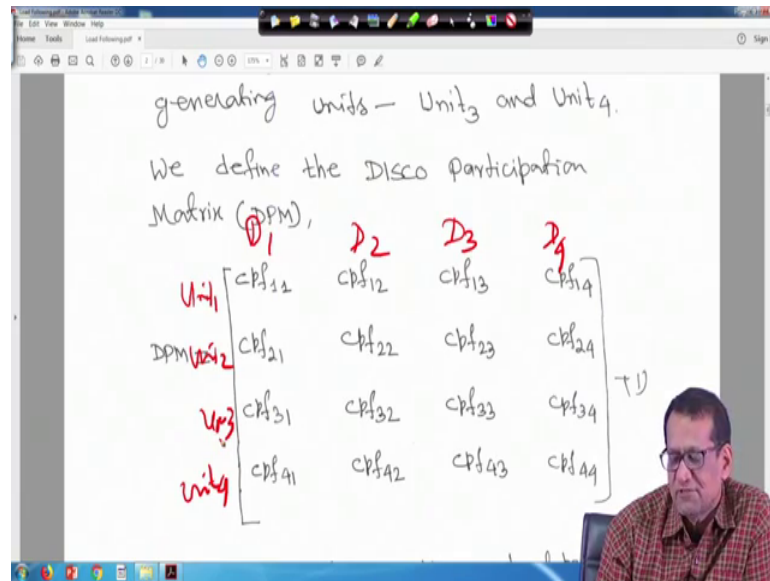 File Edit View Window Help
Home Tools Load Following.pdf × Sign
generating units — Unit3 and Unit4.
We define the DISCO Participation
Matrix (DPM),
D1 D2 D3 D4
Unit1 cpf11 cpf12 cpf13 cpf14
DPM Unit2 cpf21 cpf22 cpf23 cpf24
Un3 cpf31 cpf32 cpf33 cpf34
Unit4 cpf41 cpf42 cpf43 cpf44